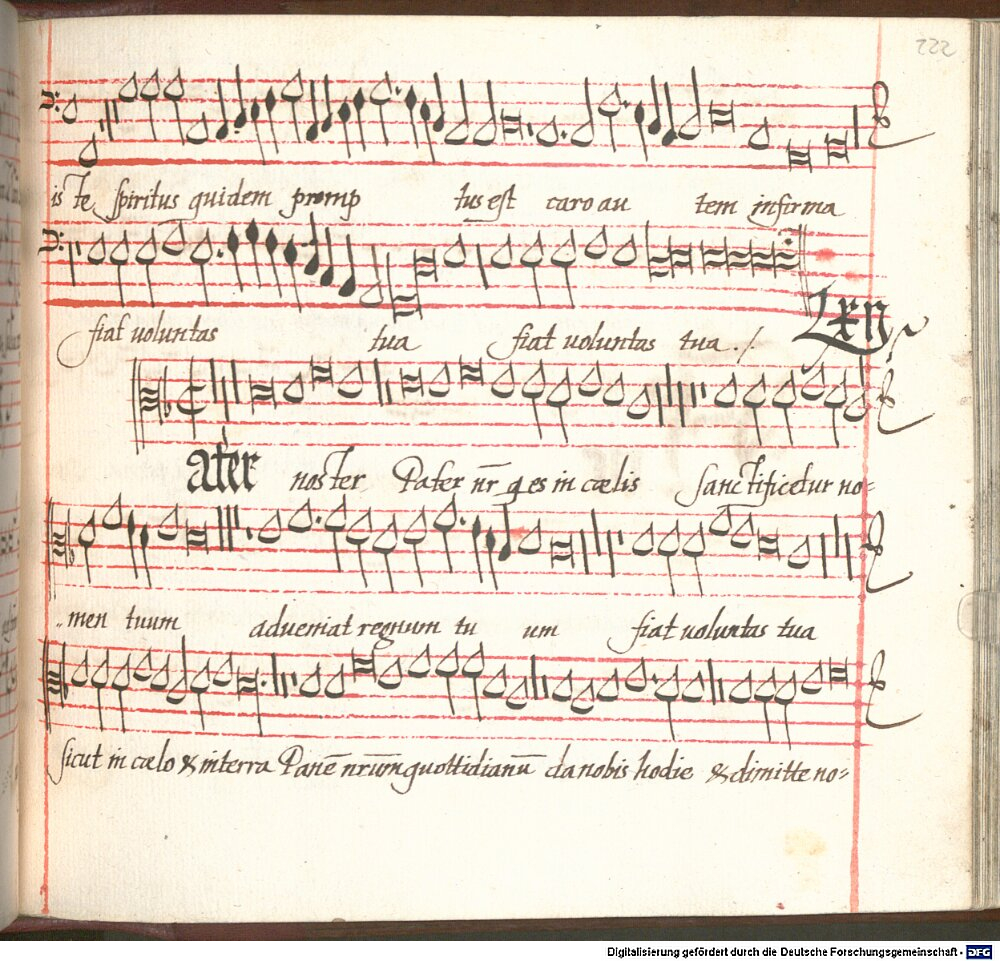 222
is te spiritus quidem promp tus est caro au tem infirma
fiat uoluntas tua fiat uoluntas tua ./
Lxn
ater noster Pater nr̄ q es in cælis sanctificetur no=
men tuum adueniat regnum tu um fiat uoluntas tua
sicut in cælo & in terra Panē nrum quottidianū da nobis hodie & dimitte no=
Digitalisierung gefördert durch die Deutsche Forschungsgemeinschaft - DFG